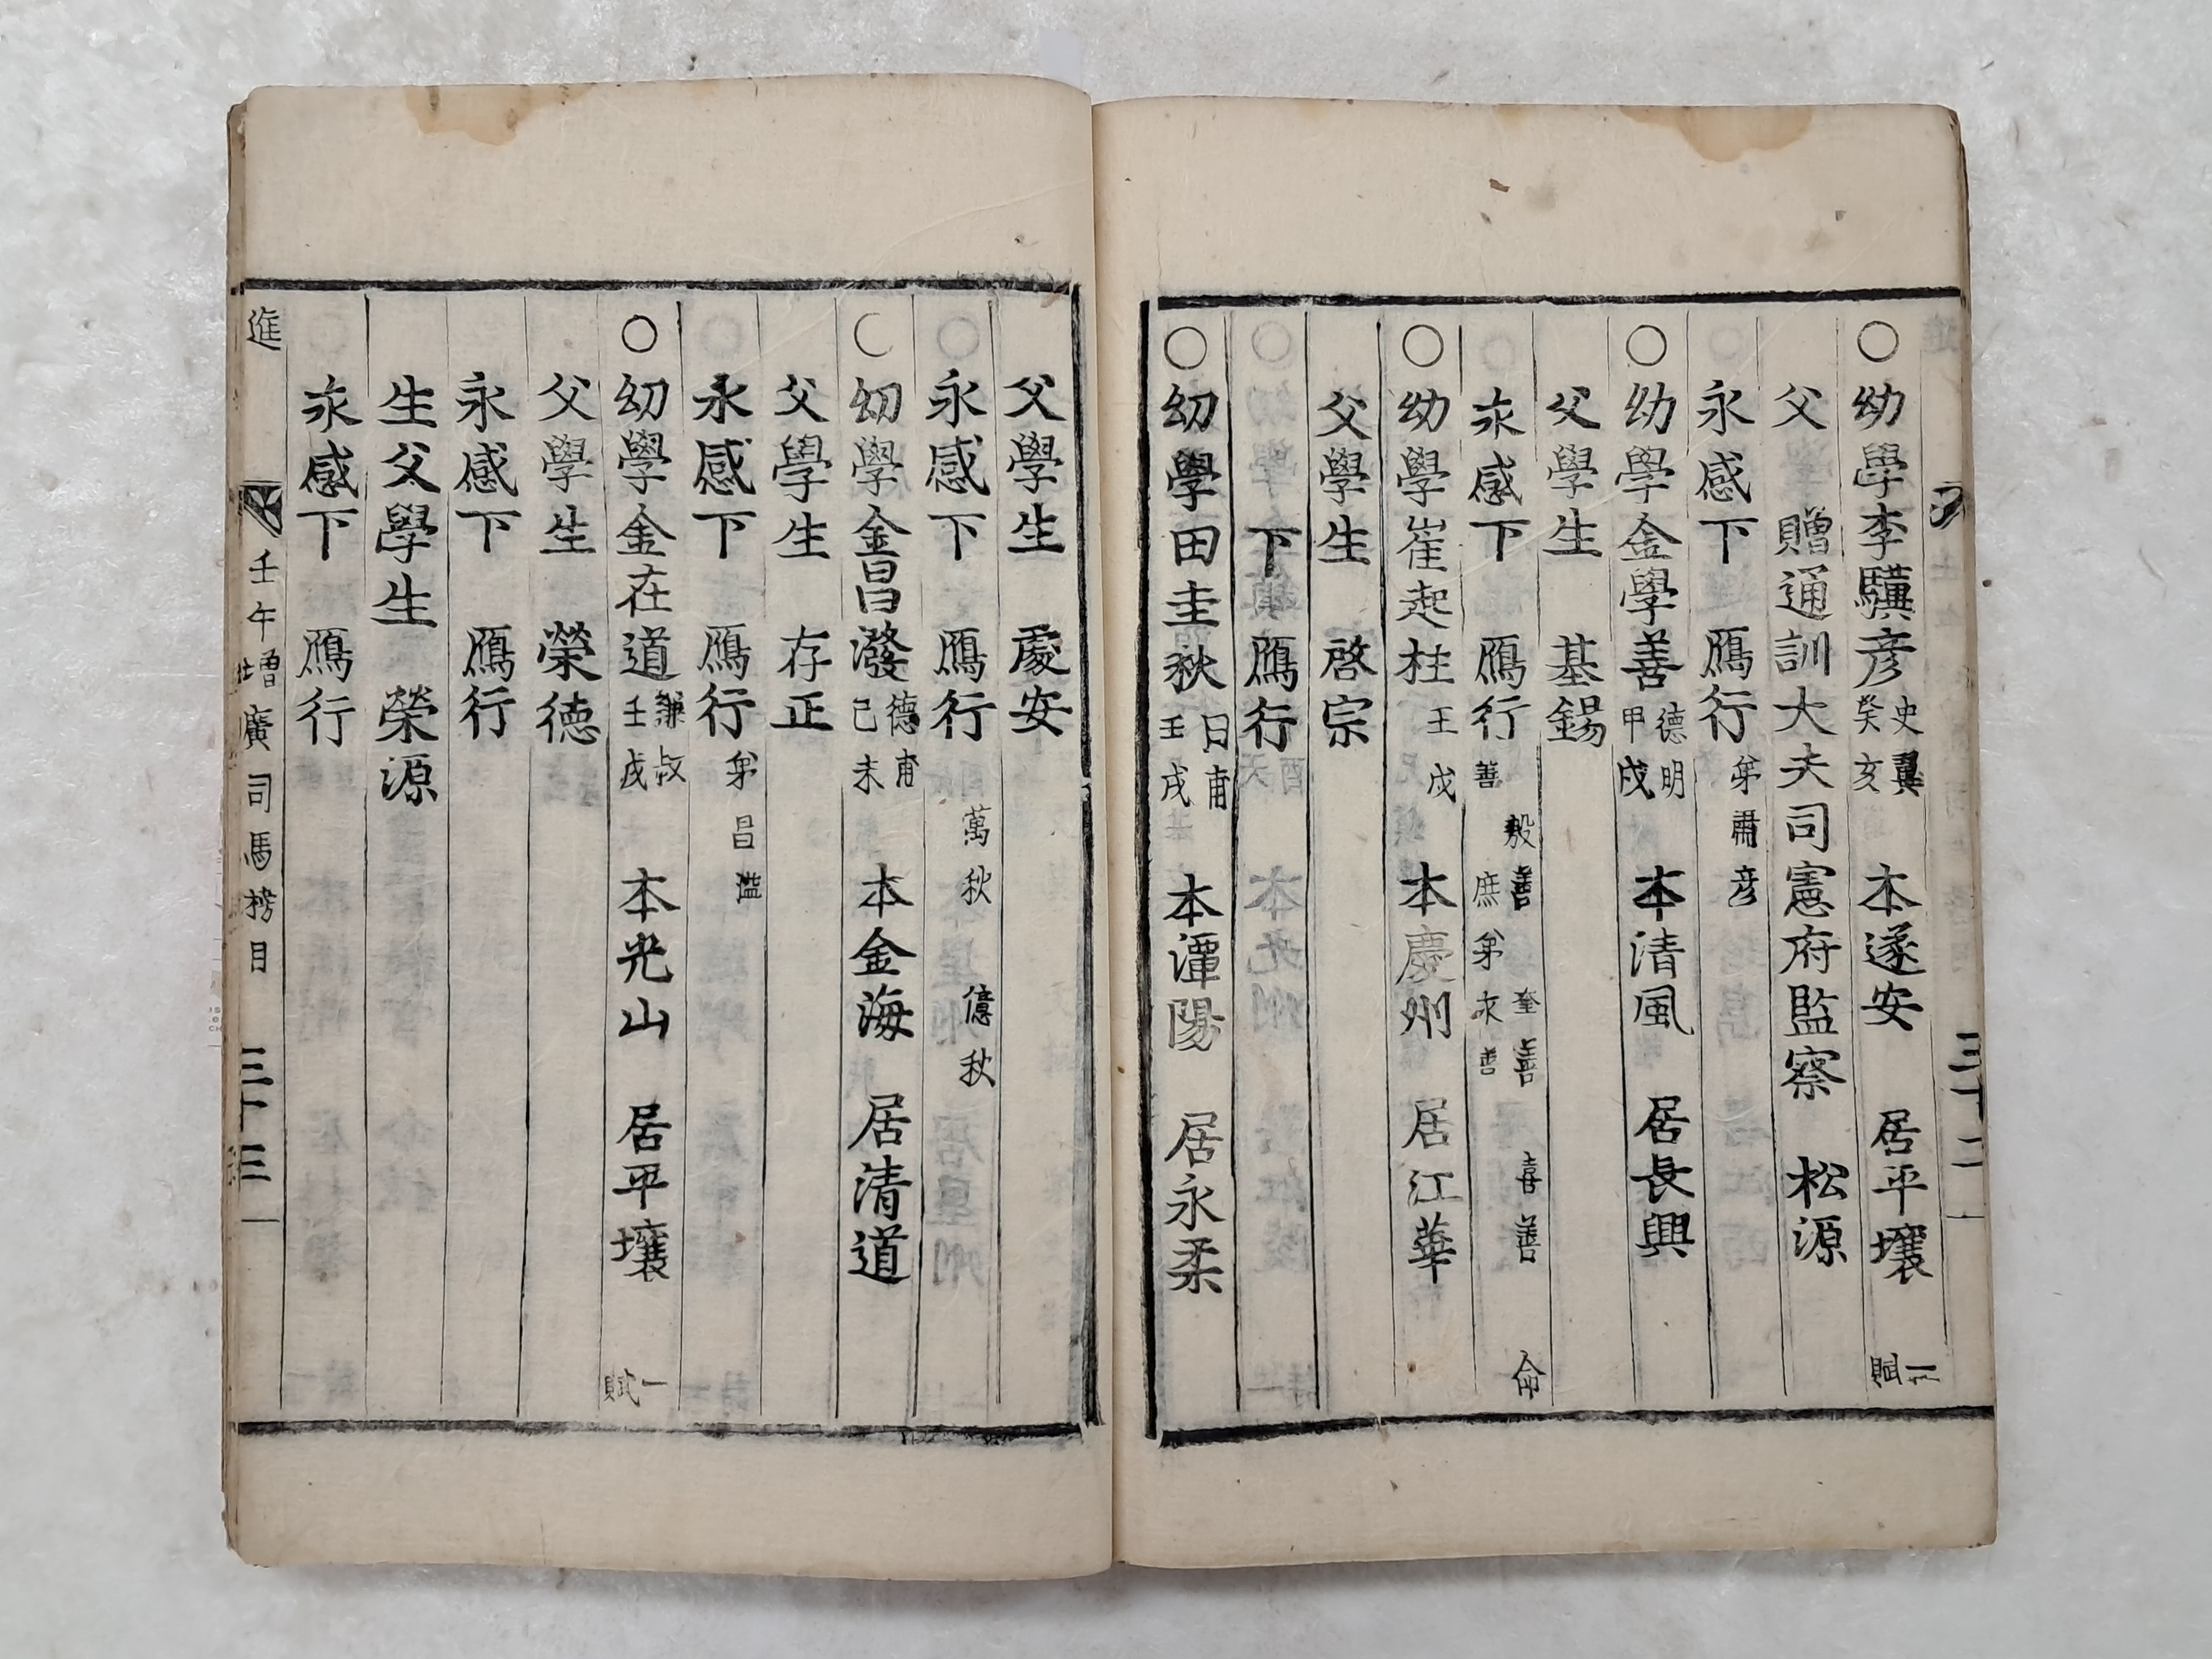 ○幼學李驥彦 史翼 癸亥 本遂安 居平壤 一賦
父 贈通訓大夫司憲府監察 松源
永感下 鴈行 弟 爾彦
○幼學金學善 德明 甲戌 本清風 居長興
父學生 基錫
永感下 鴈行 善 毅善 庶弟 奎善 求善 喜善 命
○幼學崔起柱 壬戌 本慶州 居江華
父學生 啓宗
○ 下 鴈行
○幼學田圭秋 日甫 壬戌 本潭陽 居永柔
三十二
父學生 處安
永感下 鴈行 萬秋 億秋
○幼學金昌潑 德甫 己未 本金海 居清道
父學生 存正
永感下 鴈行 弟 昌
○幼學金在道 謙叔 壬戌 本光山 居平壤 一賦
父學生 榮德
永感下 鴈行
生父學生 榮源
永感下 鴈行
進 壬午增廣司馬榜目 三十三